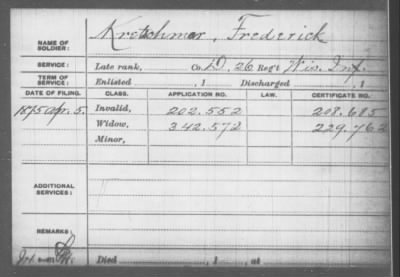 NAME OF SOLDIER: Kretschmar, Frederick
SERVICE: Late rank, Co. D, 26 Regt Wis. Inf.
TERM OF SERVICE: Enlisted , 1 Discharged , 1
DATE OF FILING. CLASS. APPLICATION NO. LAW. CERTIFICATE NO.
1875 Apr. 5. Invalid, 202.552 208.685
Widow, 342.572 229.762
Minor,
ADDITIONAL SERVICES:
REMARKS:
Died , 1 , at